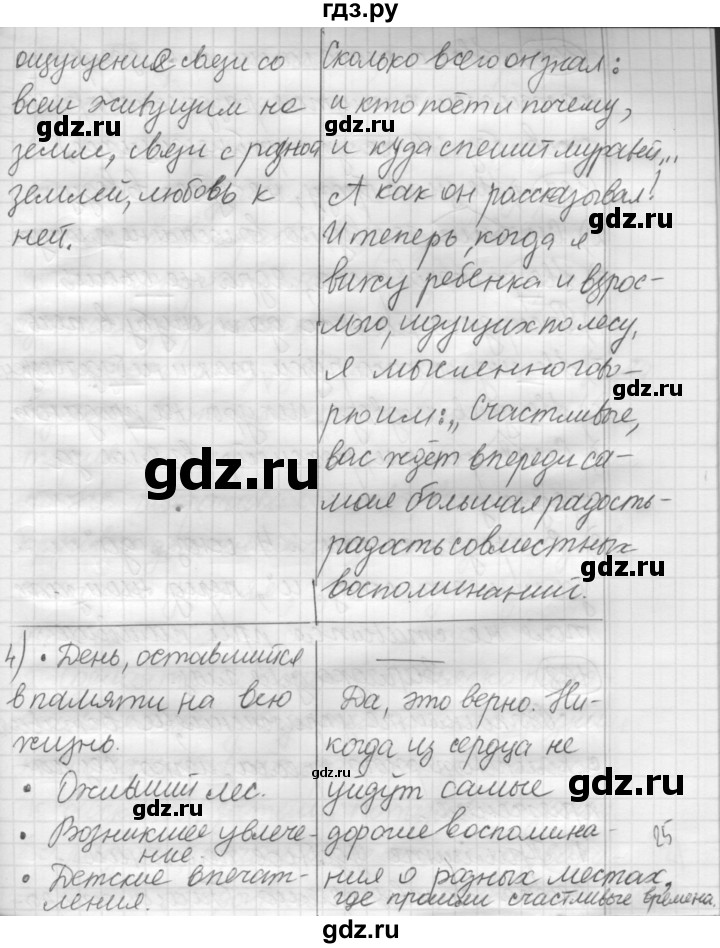 гдз.ру
ощущения связи со
всем живущим на
земле, связи с родной
землёй, любовь к
ней.
Сколько всего он знал:
и кто поёт и почему,
и куда спешит муравей...
А как он рассказывал!
И теперь, когда я
вижу ребёнка и взрос-
лого, идущих по лесу,
я мысленно гово-
рю им: „Счастливые,
вас ждёт впереди са-
мая большая радость -
радость совместных
воспоминаний.
4) • День, оставшийся
в памяти на всю
жизнь.
• Оживший лес.
• Возникшее увлече-
ние.
• Детские впечат-
ления.
Да, это верно. Ни-
когда из сердца не
уйдут самые
дорогие воспомина-
ния о родных местах,
где прошли счастливые времена.
25
gdz.ru
gdz.ru
gdz.ru
gdz.ru
gdz.ru
gdz.ru
gdz.ru
gdz.ru
gdz.ru